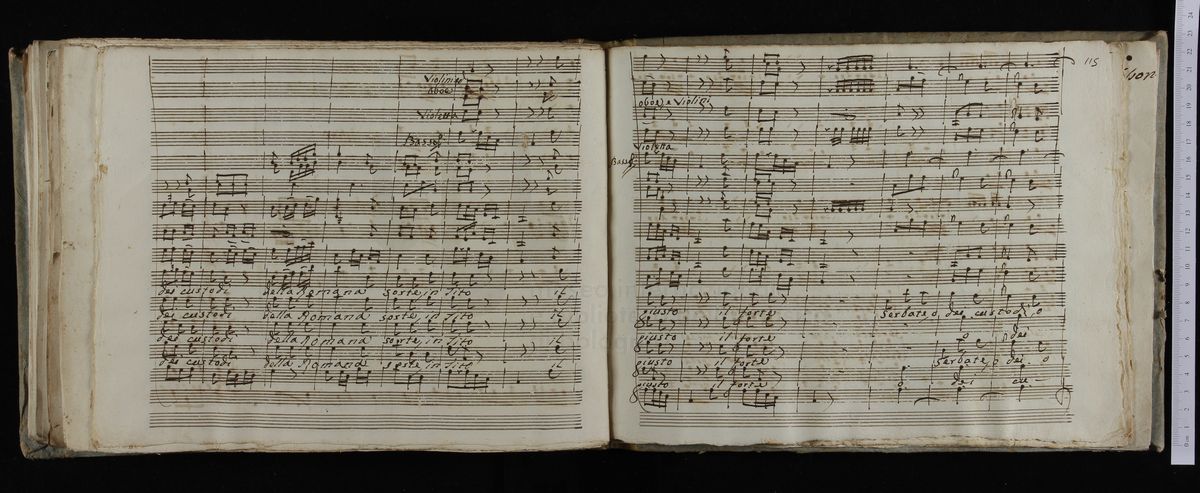 Violini e
oboe
Violetta
Bassi
dei custodi della Romana sorte, in Tito il
dei custodi della Romana sorte, in Tito il
dei custodi della Romana sorte, in Tito il
dei custodi della Romana sorte, in Tito il
115
oboe, e Violini
Violetta
Bassi
giusto il forte Serbate, o dei custodi, o
giusto il forte o dei
giusto il forte Serbate, o dei o
giusto il forte o dei cu-